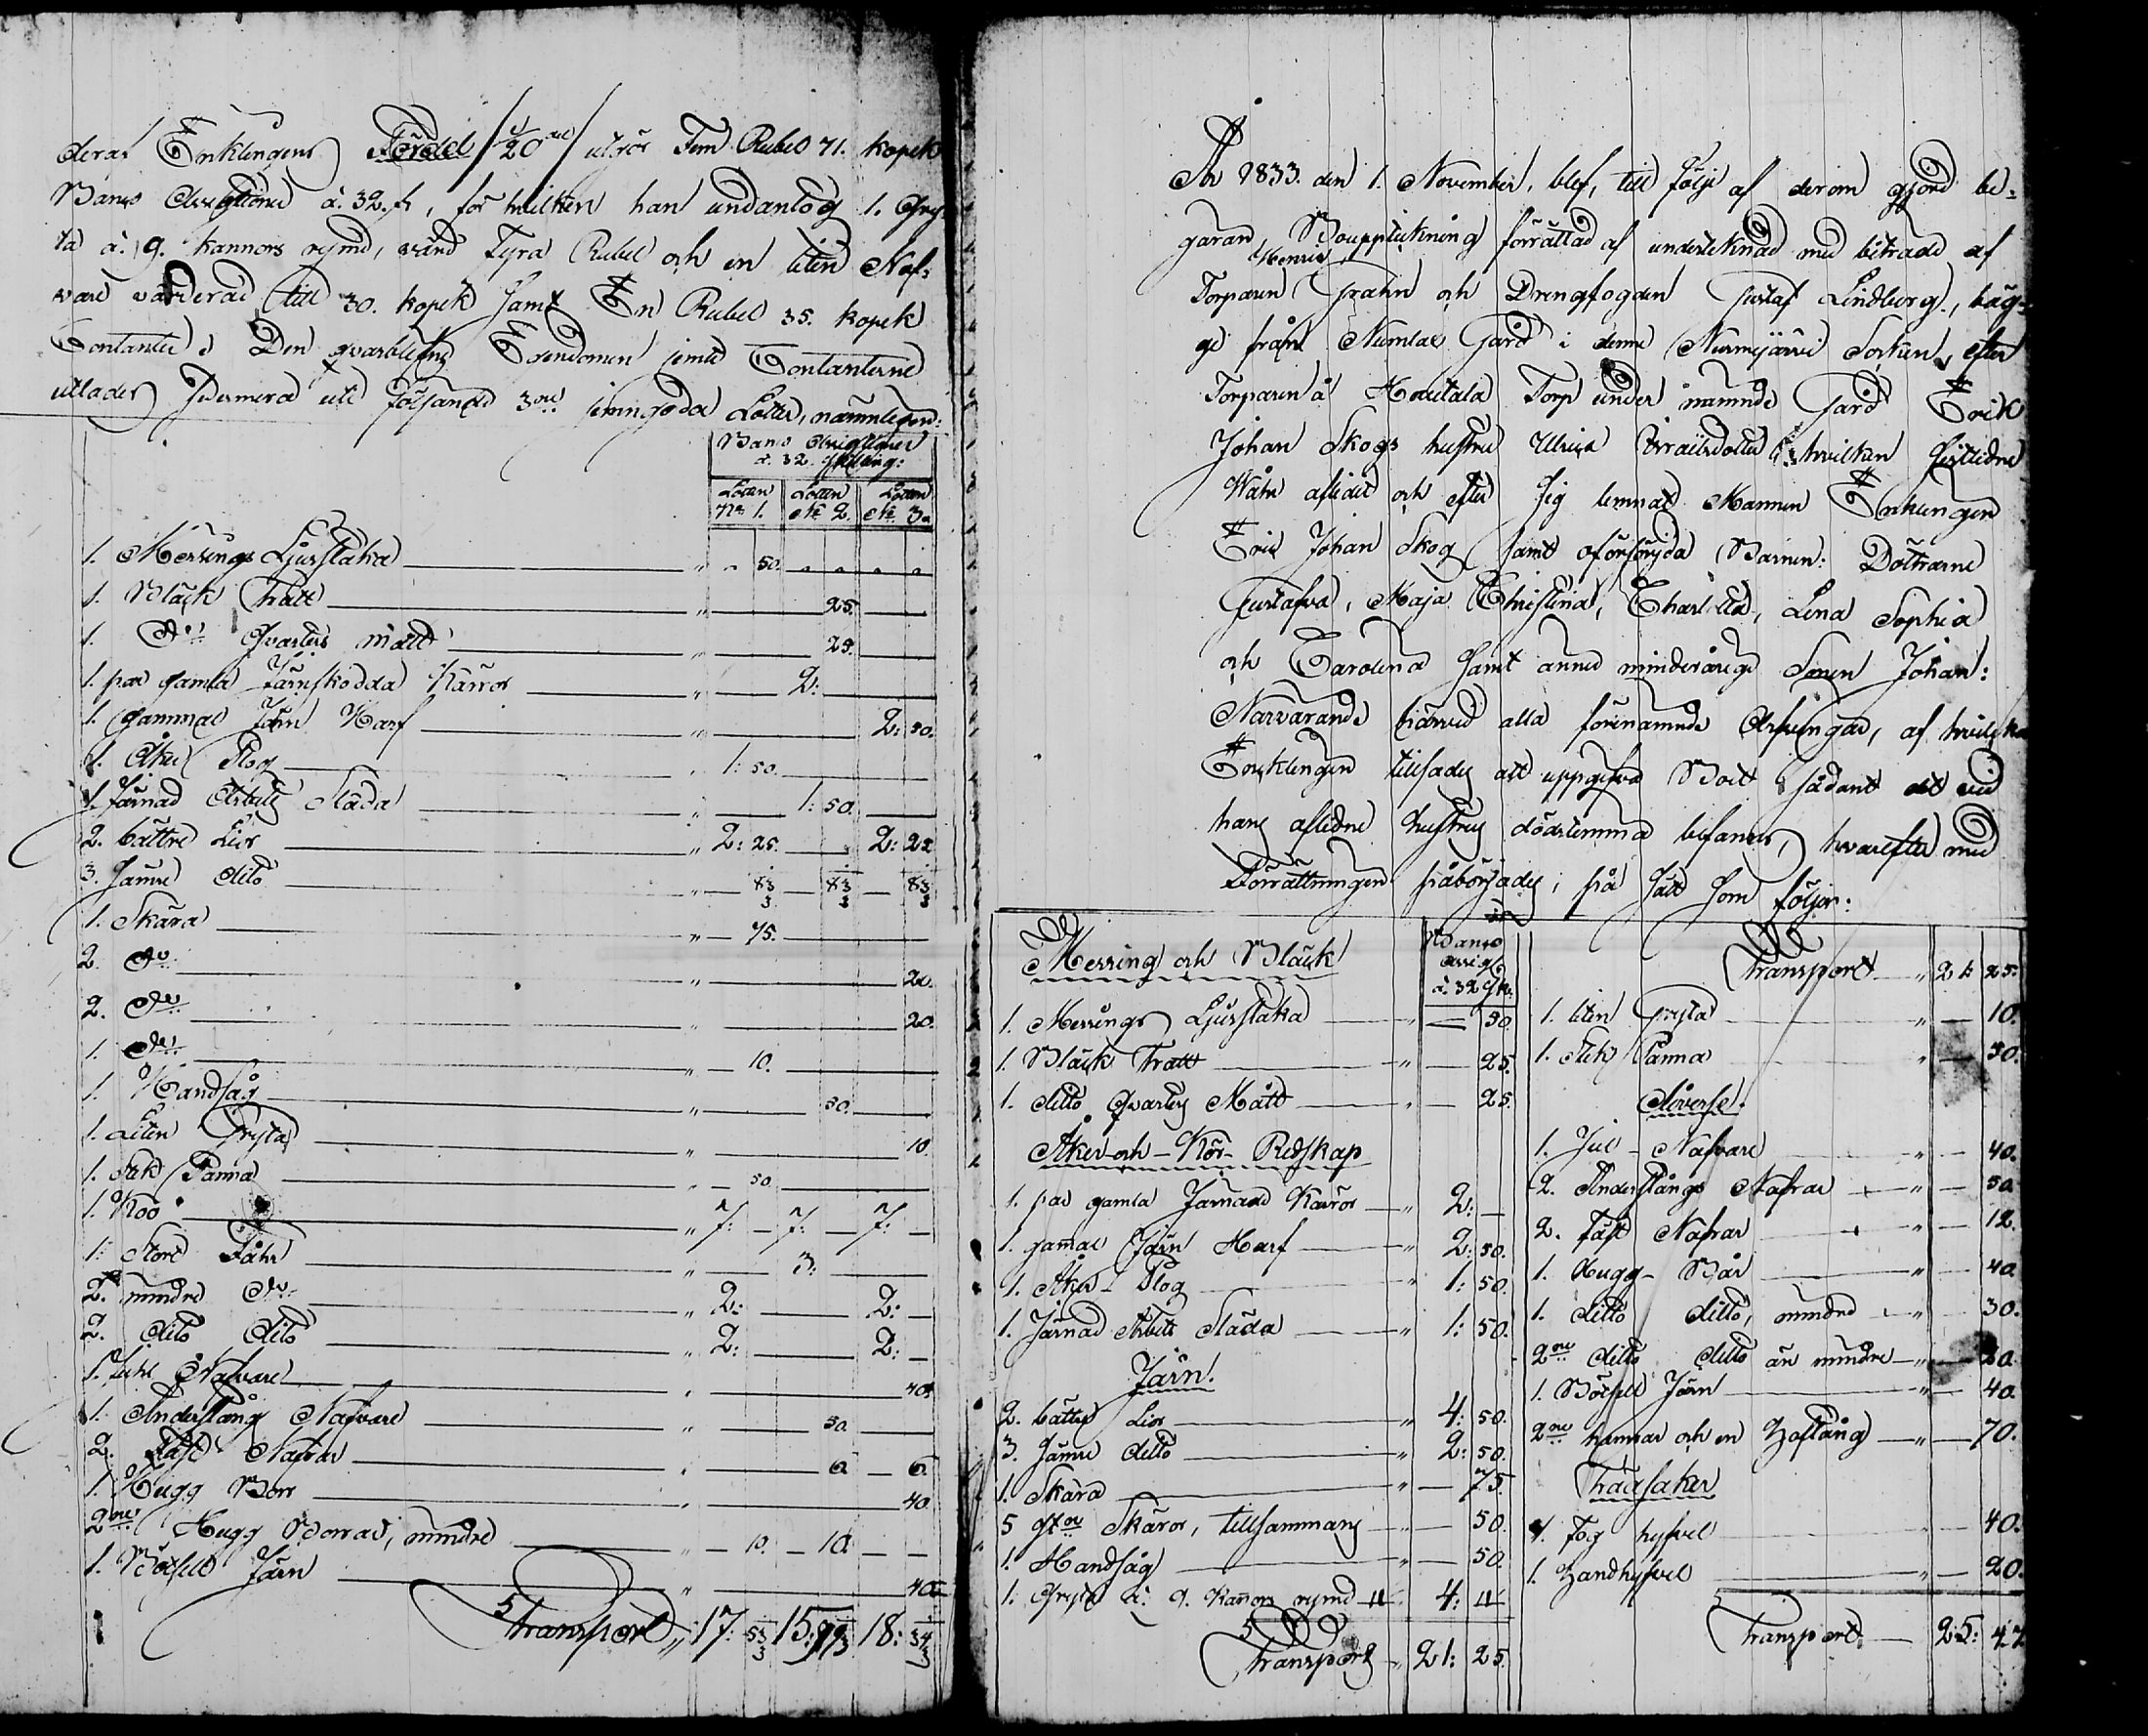 deraf Enklingens Fördel /: 1/20 del / utgör Fem Rubel 71. kopek
Banco Assignationer à 32. sk, för hvilken han undantog 1. Gry-
ta à 9. kannors rymd, värd Fyra Rubel och en liten Naf-
vare värderad till 30. kopek samt En Rubel 35. kopek
Contanter. Den qvarblefne Egendomen jemte Contanterne
utlades sedermera uti följande 3ne jemngoda Lotter, nämnligen:
Banco Assignationer
à 32. skilling:
Lotten No 1. Lotten No 2. Lotten No 3.
1. Messings Ljusstaka " " 50.
1. Bläck Tratt " 25.
1. Do Qvarters mått " 25.
1. par gamla Järnskodda Kärror " 2:
1. gammal Järn Harf " 2: 50.
1. Åker Plog " 1: 50.
1. Järnad Arbets Släda " 1: 50.
2. bättre Liar " 2: 25. 2: 25
3. sämre dito " 83 1/3 83 1/3 83 1/3
1. Skära " 75.
2. Do " 20.
2. Do " 20.
1. Do " 10.
1. Handsåg " 50.
1. Liten Gryta " 10.
1. Stek Panna " 50
1. Koo " 7: 7: 7:
1. Stort Fåhr " 3:
2. mindre Do " 2: 2:
2. dito dito " 2: 2:
1. Juhl Nafvare " 40.
1. Anderstångs Nafvare " 50.
2. Täft Nafrar " 6. 6.
1. Hugg Borr " 40.
2ne Hugg Borrar, mindre " 10. 10.
1. Bötsell Järn " 40.
Transport " 17: 53 1/3 15: 99 1/3 18: 34 1/3
År 1833. den 1. November, blef, till följe af derom gjord be-
garan, Bouppteckning förrättad af undertecknad med biträde af
Henric
Torparen Grahn och Drengfogden Gustaf Lindberg, bäg-
ge från Numlax Gård i denne Nurmijärvi Socken, efter
Torparen å Torp under nämnde Gård Eric
Johan Skogs hustru Ulrica hvilken sistledne
Wåhr aflidit och efter sig lemnat Mannen Enklingen
Eric Johan Skog samt oförsörjda Barnen: Döttrarne
Gustafva, Maja Christina, Charlotta, Lena Sophia
och Carolina samt ännu minderårige Sonen Johan:
Närvarande härvid alla förenämnde Arfvingar, af hvilka
Enklingen tillsades att uppgifva Boet sådant det vid
hans aflidne hustrus dödstimma befanns, hvarefter med
Förrättningen påbörjades, på sätt som följer:
Messing och Bläck
Banco
assig
à 32 sk.
1. Messings Ljusstaka " 50.
1. Bläck Tratt " 25.
1. ditto Qvarters Mått " 25.
Åker- och- Kör- Redskap
1. par gamla Järnade Kärror " 2:
1. gamal Järn Harf " 2: 50.
1. Åker- Plog " 1: 50.
1. Järnad Arbets Släda " 1: 50.
Järn.
2. bättre Liar " 4: 50.
3. sämre ditto " 2: 50.
1. Skära " 75.
5 st Skäror, tillsammans 50.
1. Handsåg " 50.
1. Gryta à 9. Kannors rymd " 4: "
Transport " 21: 25.
Transport " 21: 25.
1. liten Gryta " 10.
1. Stek Panna " 50.
Diverse.
1. Jul- Nafvare " 40.
2. Anderstångs Nafrar " 50
2. Täft Nafrar " 12.
1. Hugg- Bår " 40.
1. ditto ditto, mindre " 30.
2ne ditto ditto än mindre " 20.
1. Bötsell Järn " 40.
2ne hamrar och en Hoftång " 70.
Träsaker
1. Fog hyfvel 40.
1. Handhyfvel " 20.
Transport 25: 47